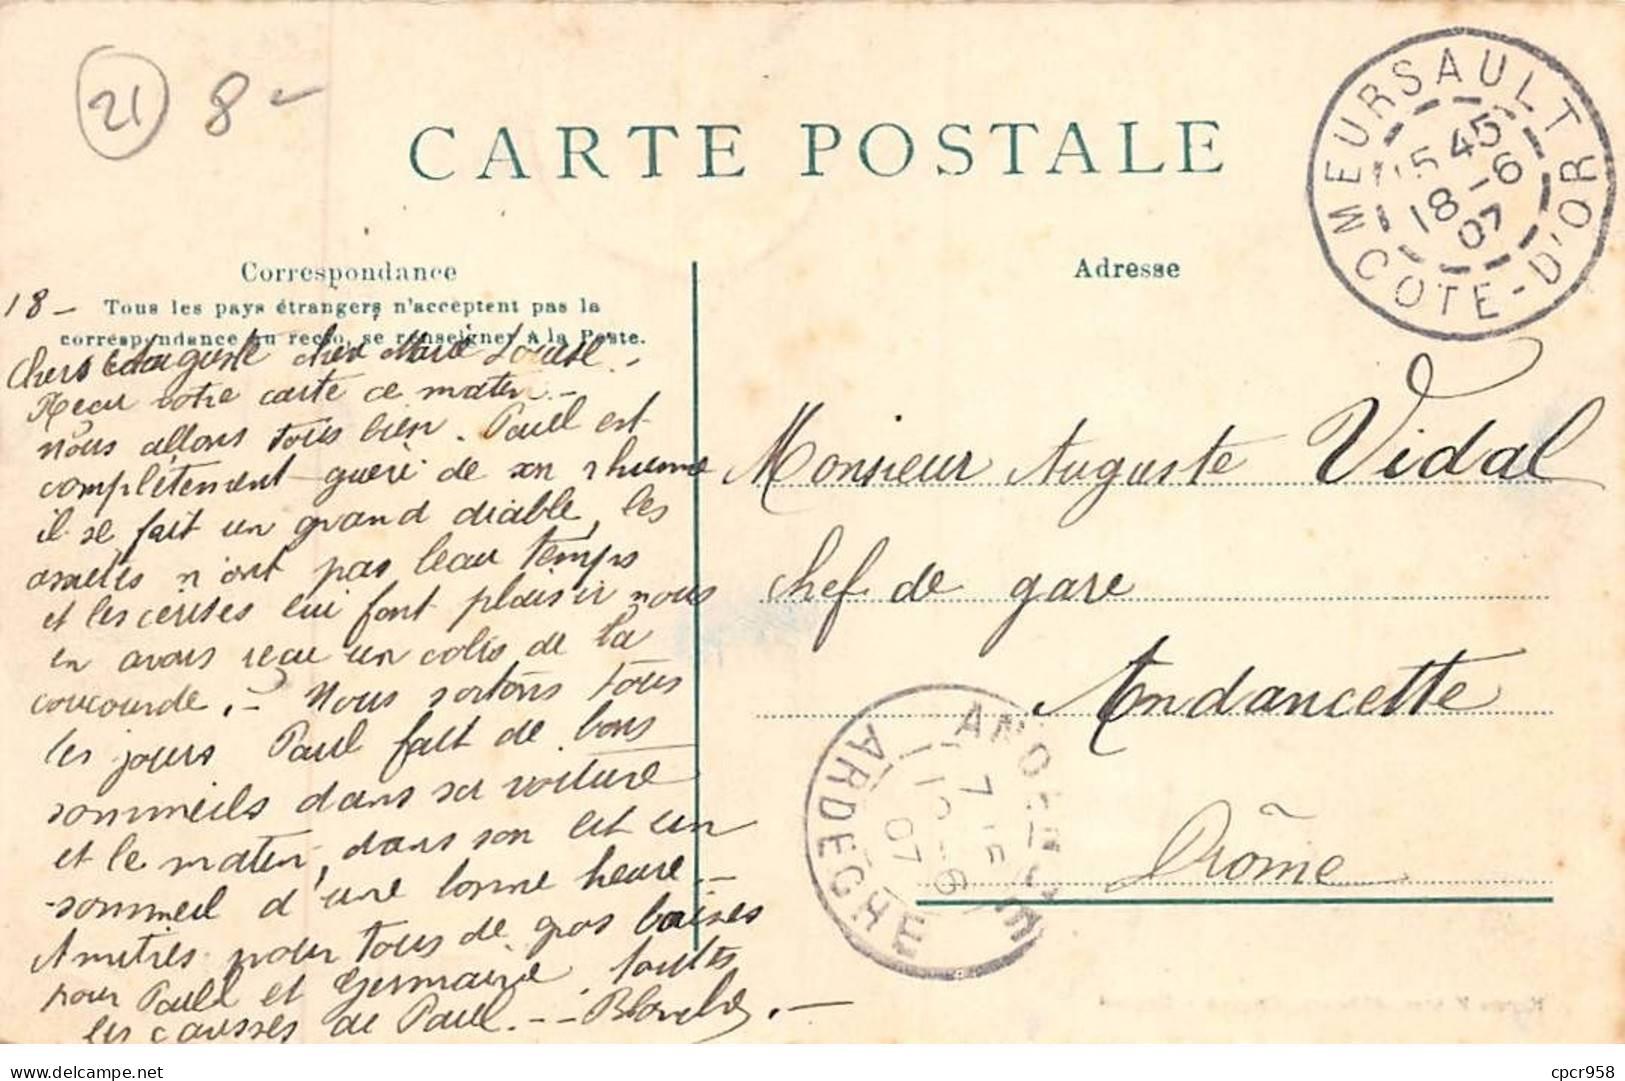 21 8 -
CARTE POSTALE
MEURSAULT
15 45
18 - 6
07
COTE-D'OR
Correspondance
Tous les pays étrangers n'acceptent pas la
correspondance au recto, se renseigner à la Poste.
18 -
Chers Auguste cher Marie Louise. -
Reçu votre carte ce matin. -
nous allons tous bien. Paull est
complètement guéri de son rhume
il se fait un grand diable, les
n'ont pas beau temps
et les cerises lui font plaisir nous
en avons reçu un colis de la
coucourde. - Nous sortons tous
les jours Paul fait de bons
sommeils dans sa voiture
et le matin, dans son lit un
sommeil d'une bonne heure. -
Amitiés pour tous de gros baises
pour Paull et Germaine, toutes
les causses de Paull. - - Blanche. -
Adresse
Monsieur Auguste Vidal
chef de gare
Andancette
Drôme
ARDÈCHE
7 15
19 - 6
07
cpcr958